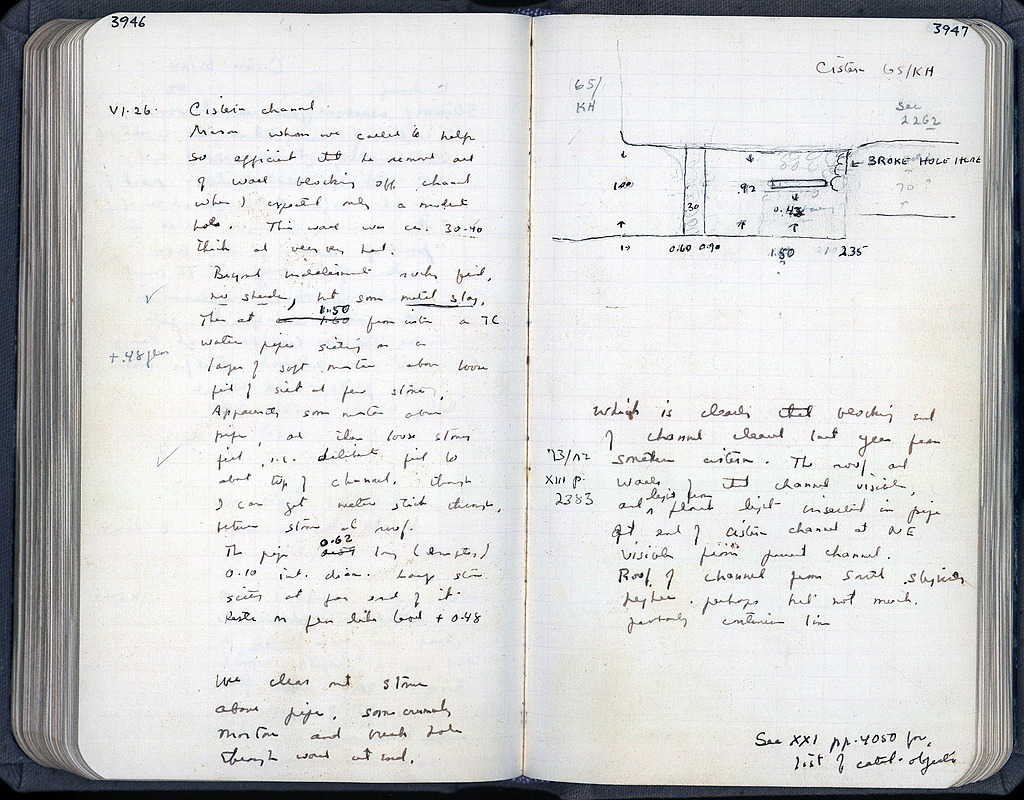 3946
VI.26. Cistern channel.
Mason whom we called to help
so efficient that he removed all
of wall blocking off channel
when I expected only a modest
hole. This wall was ca. 30-40
thick and very very hard.
Beyond indeterminate rocky fill,
no sherds, but some metal slag.
Then at 1.50 1.60 from cistern a TC
water pipe sitting on a
+.48
layer of soft mortar above loose
fill of silt and few stones.
Apparently some mortar above
pipe, and then loose stony
fill, i.e. deliberate fill to
about top of channel, though
I can get meter stick through,
between stone and roof.
The pipe 0.62 long (
0.10 int. diam. Large stone
sits at far end of it.
Rests on level + 0.48
We clear out stone
above pipe, some crumbly
mortar and break hole
through wall at end.
3947
Cistern 65/KH
65/
KH
See
2262
← BROKE HOLE HERE
1.00
.92
70
30
0.43
0.60 0.90
1.50
2.35
Which is clearly that blocking end
of channel cleared last year from
smaller cistern. The roof and
'73/
XIII p.
2383
walls of that channel visible,
and light from flash light inserted in pipe
at end of cistern channel at NE
visible from present channel.
Roof of channel from south slightly
higher, perhaps but not much.
See XXI pp. 4050 for
list of catal. objects